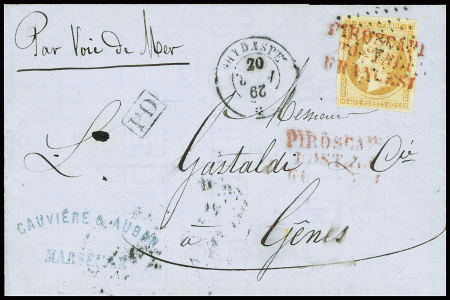 Par Voie de Mer
HYDASPE
20
62
PIROSCAFI
POSTALI
FRANCESI
POSTES
PD
Messieurs
L. Gastaldi & Cie
PIROSCAFI
POSTALI
à
Gênes
CAUVIÈRE & AUBAN
MARSEILLE